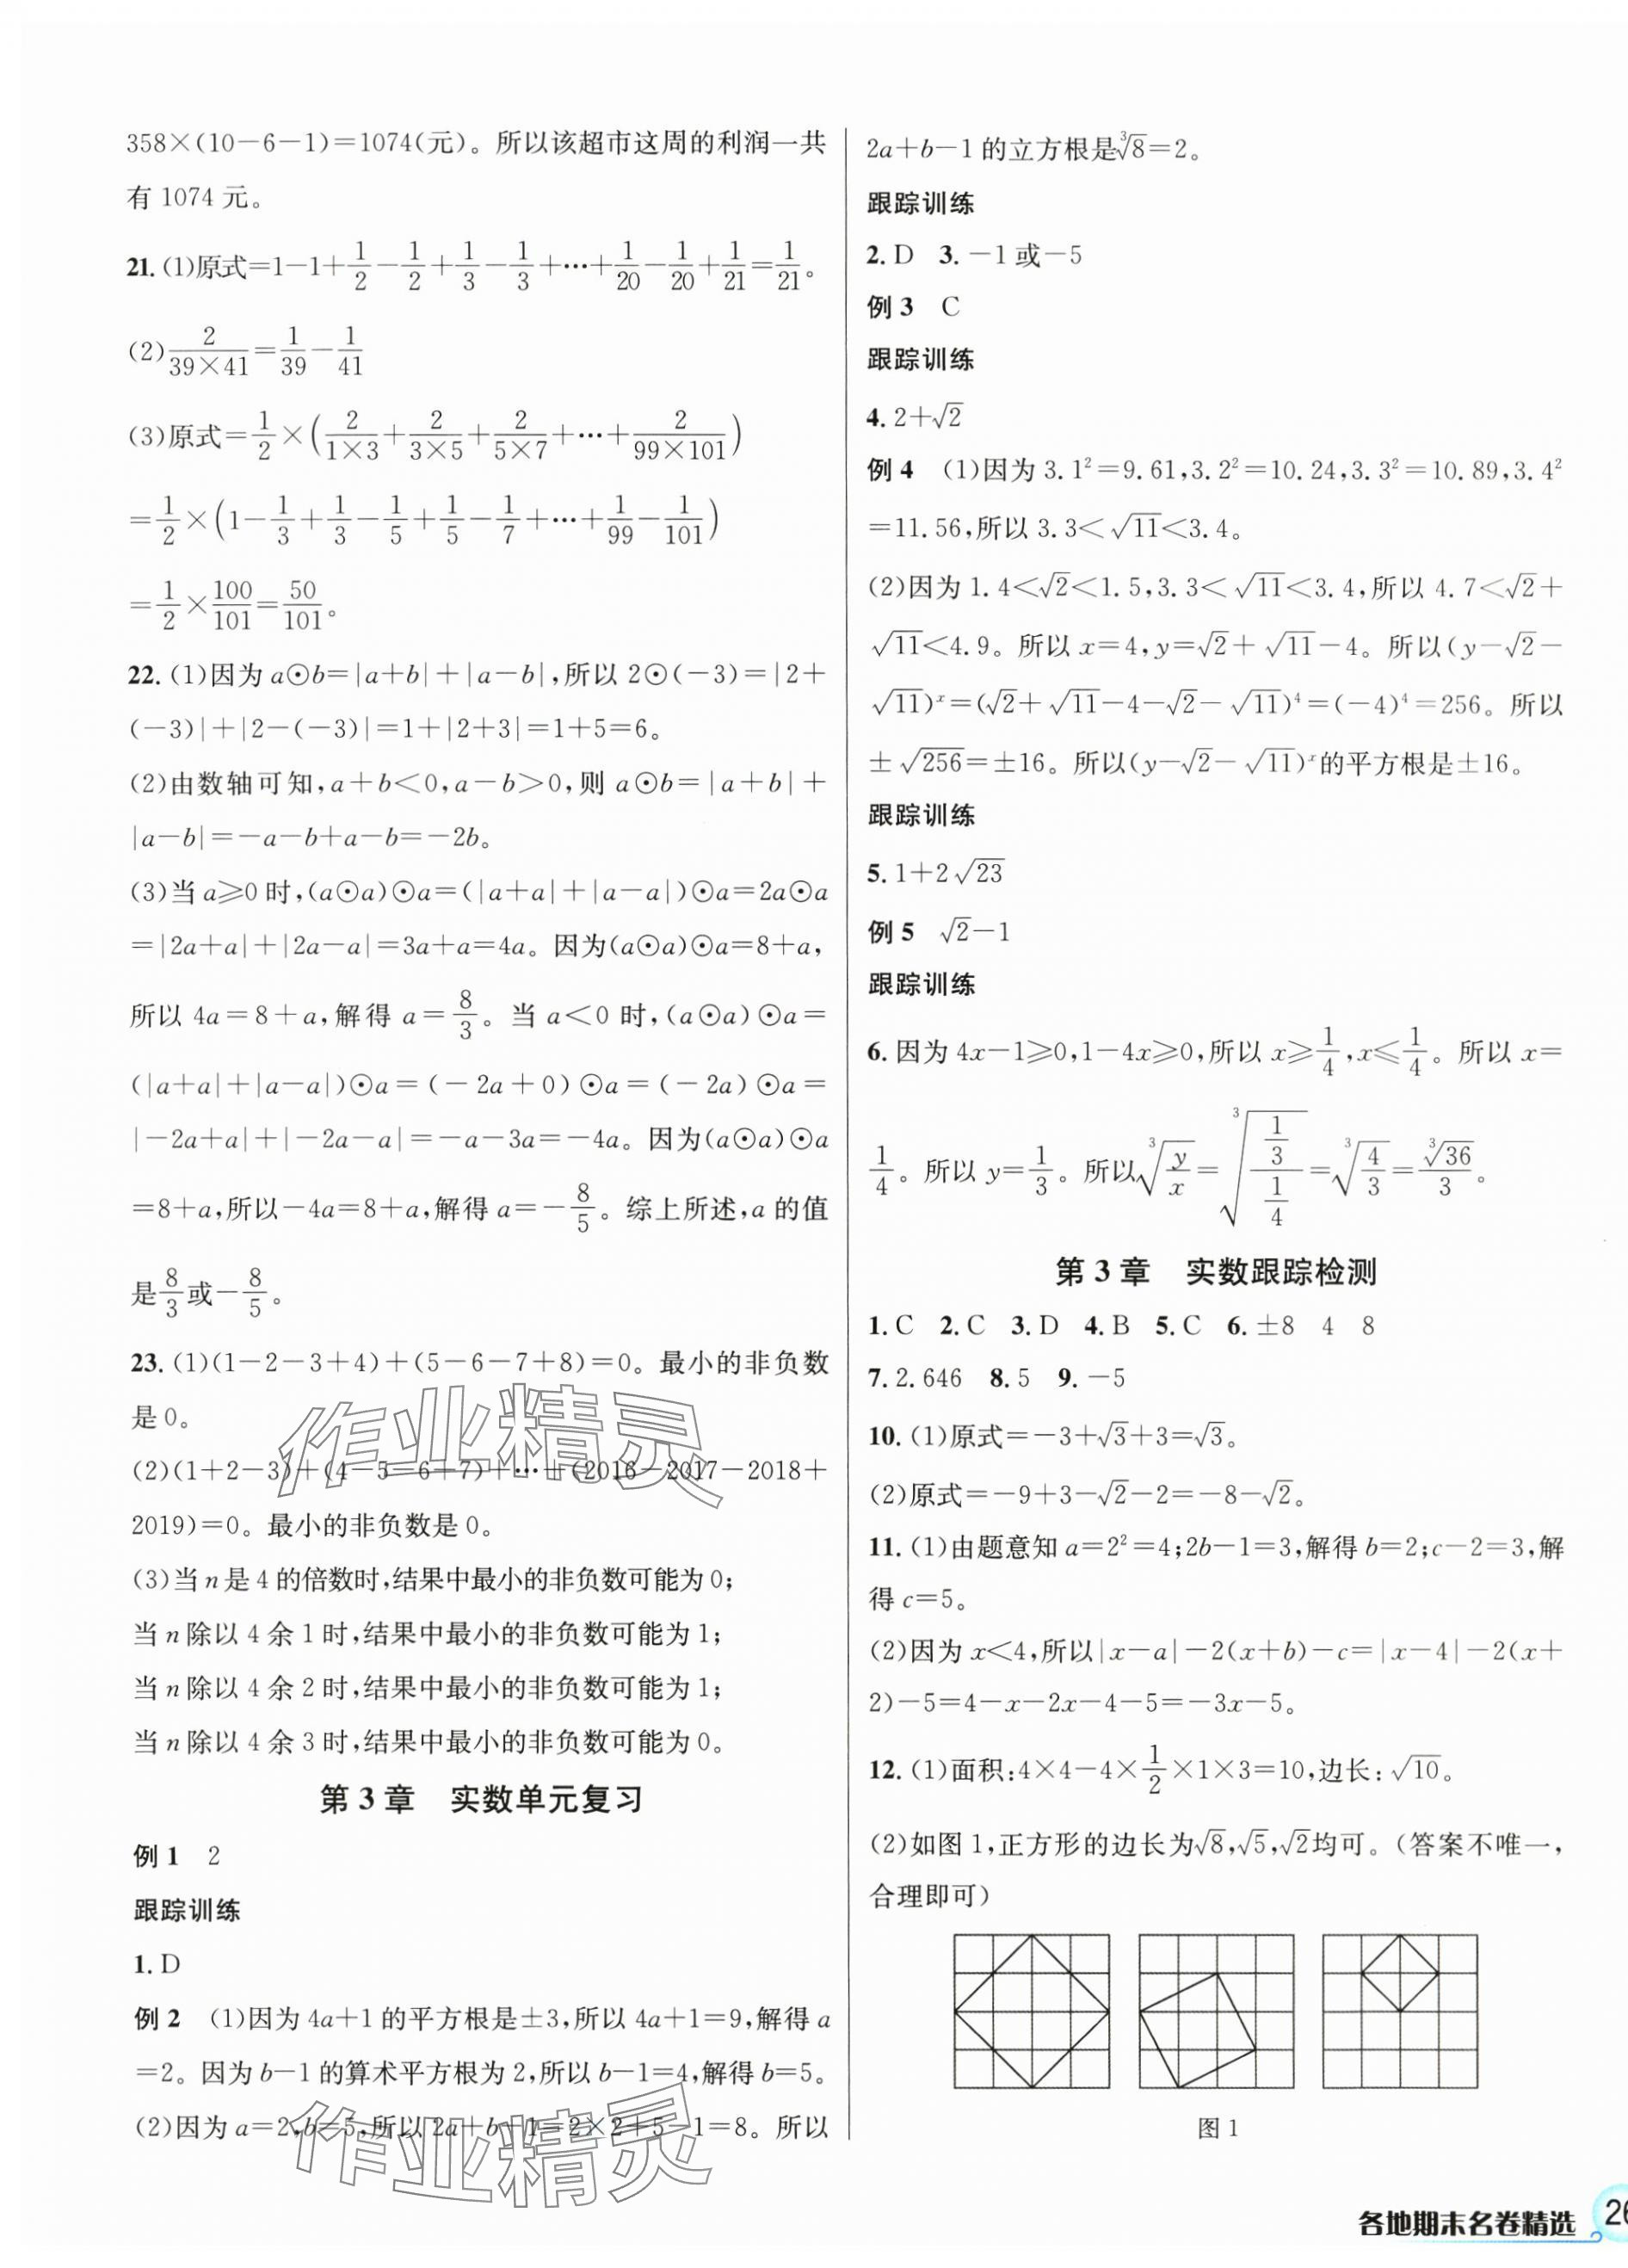 358×(10－6－1)＝1074(元)。所以该超市这周的利润一共
有 1074 元。
21. (1)原式＝1－1＋1/2－1/2＋1/3－1/3＋…＋1/20－1/20＋1/21＝1/21。
(2) 2/(39×41)＝1/39－1/41
(3)原式＝1/2×(2/(1×3)＋2/(3×5)＋2/(5×7)＋…＋2/(99×101))
＝1/2×(1－1/3＋1/3－1/5＋1/5－1/7＋…＋1/99－1/101)
＝1/2×100/101＝50/101。
22. (1)因为 a⊙b＝|a＋b|＋|a－b|,所以 2⊙(－3)＝|2＋
(－3)|＋|2－(－3)|＝1＋|2＋3|＝1＋5＝6。
(2)由数轴可知,a＋b＜0,a－b＞0,则 a⊙b＝|a＋b|＋
|a－b|＝－a－b＋a－b＝－2b。
(3)当 a≥0 时,(a⊙a)⊙a＝(|a＋a|＋|a－a|)⊙a＝2a⊙a
＝|2a＋a|＋|2a－a|＝3a＋a＝4a。因为(a⊙a)⊙a＝8＋a,
所以 4a＝8＋a,解得 a＝8/3。当 a＜0 时,(a⊙a)⊙a＝
(|a＋a|＋|a－a|)⊙a＝(－2a＋0)⊙a＝(－2a)⊙a＝
|－2a＋a|＋|－2a－a|＝－a－3a＝－4a。因为(a⊙a)⊙a
＝8＋a,所以－4a＝8＋a,解得 a＝－8/5。综上所述,a 的值
是8/3或－8/5。
23. (1)(1－2－3＋4)＋(5－6－7＋8)＝0。最小的非负数
是 0。
(2)(1＋2－3)＋(4－5－6＋7)＋…＋(2016－2017－2018＋
2019)＝0。最小的非负数是 0。
(3)当 n 是 4 的倍数时,结果中最小的非负数可能为 0;
当 n 除以 4 余 1 时,结果中最小的非负数可能为 1;
当 n 除以 4 余 2 时,结果中最小的非负数可能为 1;
当 n 除以 4 余 3 时,结果中最小的非负数可能为 0。
第 3 章　实数单元复习
例 1　2
跟踪训练
1. D
例 2　(1)因为 4a＋1 的平方根是±3,所以 4a＋1＝9,解得 a
＝2。因为 b－1 的算术平方根为 2,所以 b－1＝4,解得 b＝5。
(2)因为 a＝2,b＝5,所以 2a＋b－1＝2×2＋5－1＝8。所以
2a＋b－1 的立方根是∛8＝2。
跟踪训练
2. D　3. －1 或－5
例 3　C
跟踪训练
4. 2＋√2
例 4　(1)因为 3.1²＝9.61,3.2²＝10.24,3.3²＝10.89,3.4²
＝11.56,所以 3.3＜√11＜3.4。
(2)因为 1.4＜√2＜1.5,3.3＜√11＜3.4,所以 4.7＜√2＋
√11＜4.9。所以 x＝4,y＝√2＋√11－4。所以(y－√2－
√11)ˣ＝(√2＋√11－4－√2－√11)⁴＝(－4)⁴＝256。所以
±√256＝±16。所以(y－√2－√11)ˣ的平方根是±16。
跟踪训练
5. 1＋2√23
例 5　√2－1
跟踪训练
6. 因为 4x－1≥0,1－4x≥0,所以 x≥1/4,x≤1/4。所以 x＝
1/4。所以 y＝1/3。所以∛(y/x)＝∛((1/3)/(1/4))＝∛(4/3)＝∛36/3。
第 3 章　实数跟踪检测
1. C　2. C　3. D　4. B　5. C　6. ±8　4　8
7. 2.646　8. 5　9. －5
10. (1)原式＝－3＋√3＋3＝√3。
(2)原式＝－9＋3－√2－2＝－8－√2。
11. (1)由题意知 a＝2²＝4;2b－1＝3,解得 b＝2;c－2＝3,解
得 c＝5。
(2)因为 x＜4,所以|x－a|－2(x＋b)－c＝|x－4|－2(x＋
2)－5＝4－x－2x－4－5＝－3x－5。
12. (1)面积:4×4－4×1/2×1×3＝10,边长:√10。
(2)如图 1,正方形的边长为√8,√5,√2均可。(答案不唯一,
合理即可)
图 1
作业精灵
作业精灵
各地期末名卷精选
26